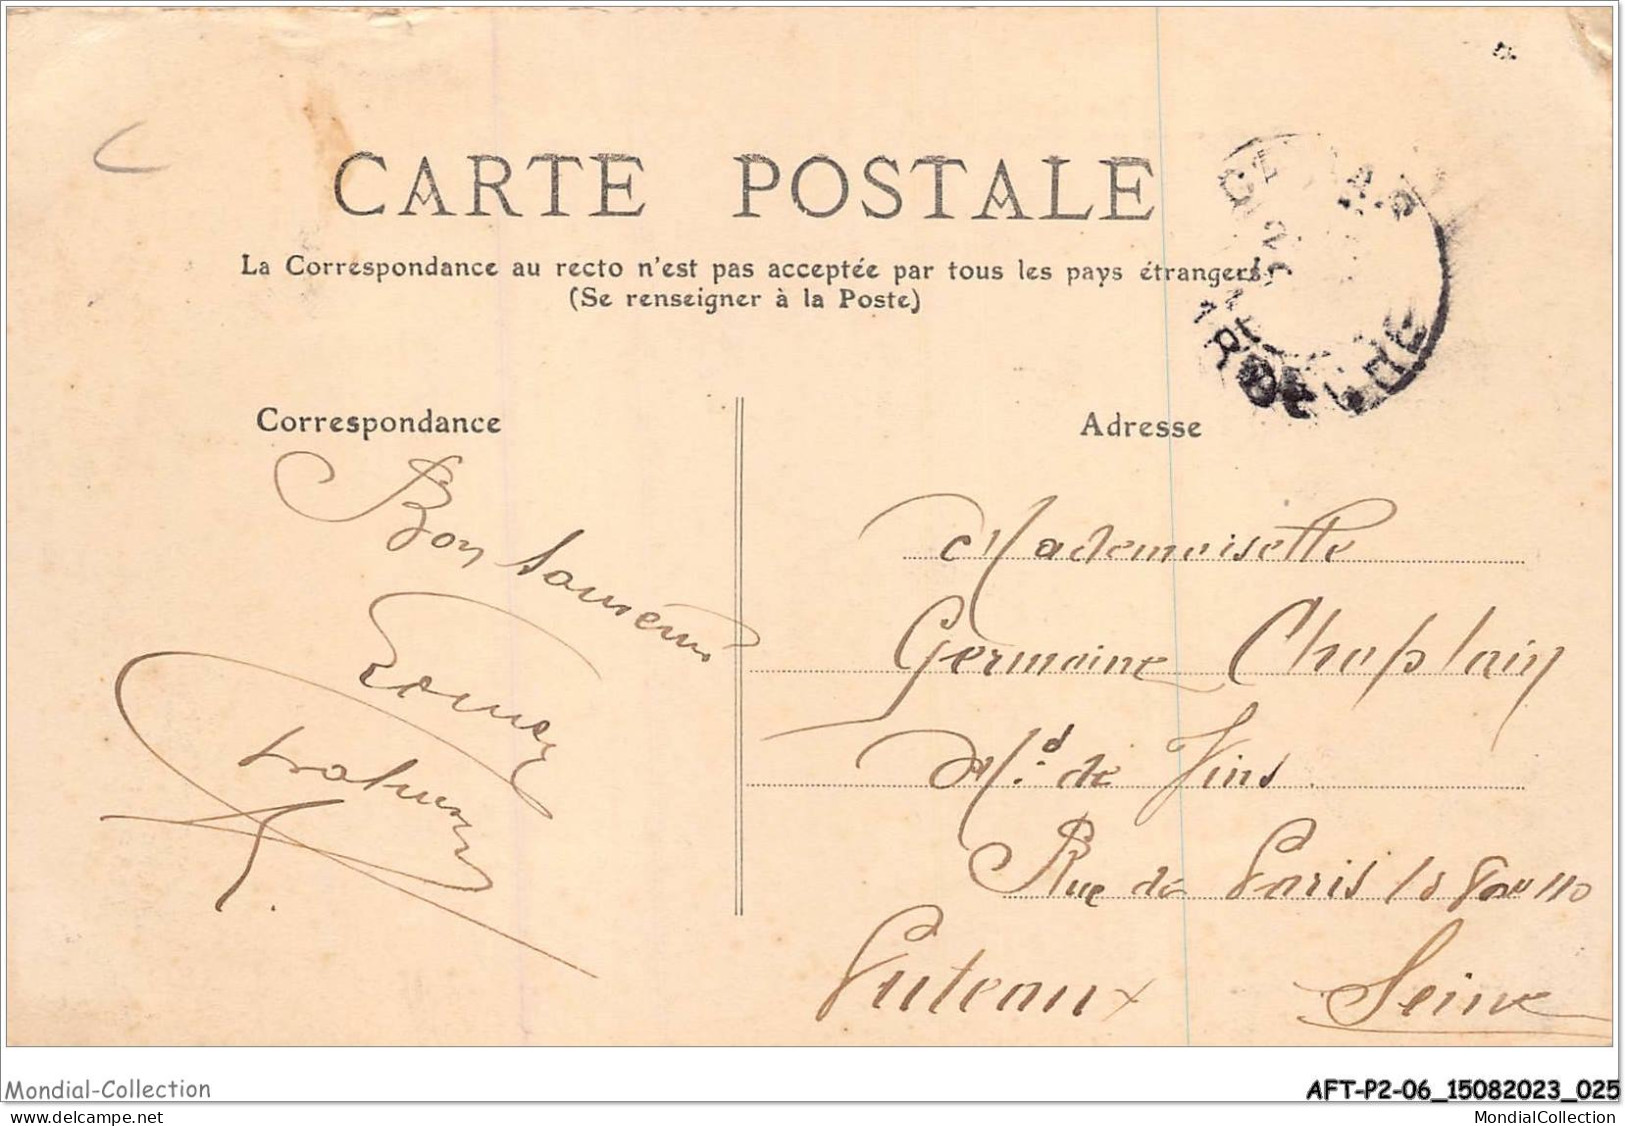 CARTE POSTALE
La Correspondance au recto n'est pas acceptée par tous les pays étrangers
(Se renseigner à la Poste)
Correspondance
Bon Souvenir
Adresse
Mademoiselle
Germaine Chaplain
Md de Vins
Rue de Paris
Puteaux Seine
Mondial-Collection
AFT-P2-06_15082023_025
www.delcampe.net
MondialCollection